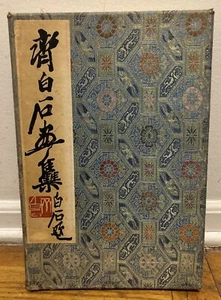 齊白石画集
白石題